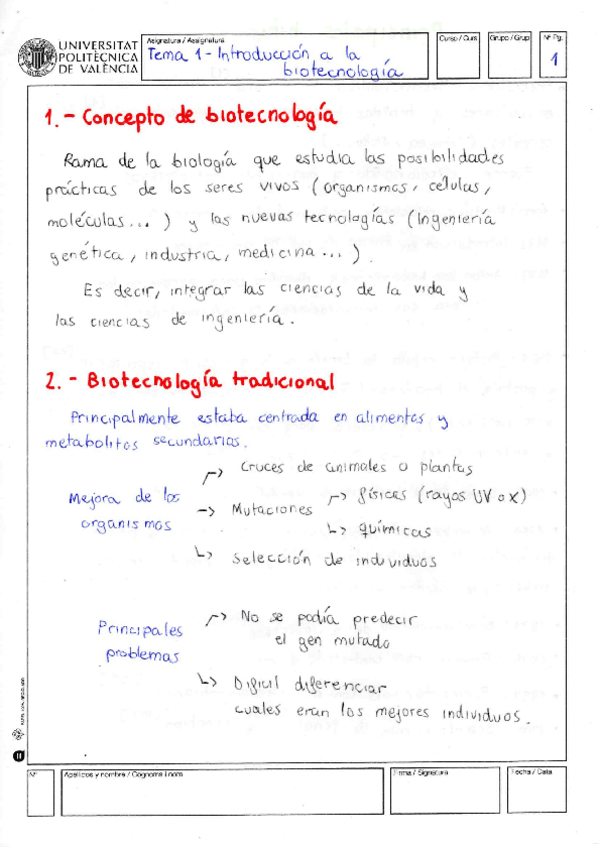 UNIVERSITAT
POLITÈCNICA
DE VALÈNCIA
Asignatura / Assignatura
Tema 1 - Introducción a la
biotecnología
Curso / Curs
Grupo / Grup
Nº Pg.
1
1. - Concepto de biotecnología
Rama de la biología que estudia las posibilidades
prácticas de los seres vivos (organismos, células,
moléculas...) y las nuevas tecnologías (Ingeniería
genética, industria, medicina...).
Es decir, integrar las ciencias de la vida y
las ciencias de ingeniería.
2. - Biotecnología tradicional
Principalmente estaba centrada en alimentos y
metabolitos secundarios.
Mejora de los
organismos
-> Cruces de animales o plantas
-> Mutaciones -> físicas (rayos UV o X)
-> químicas
-> selección de individuos
Principales
problemas
-> No se podía predecir
el gen mutado
-> Difícil diferenciar
cuales eran los mejores individuos.
Nº
Apellidos y nombre / Cognoms i nom
Firma / Signatura
Fecha / Data